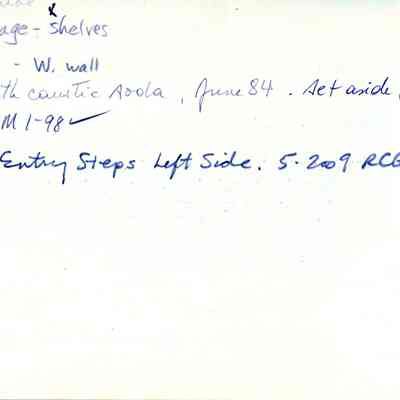 age - shelves
x
- W. wall
th caustic soda, June 84. Set aside,
M 1-98 ✓
Entry Steps Left Side. 5-2009 RCG